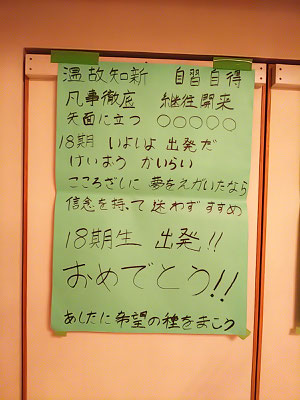 温故知新　自習自得
凡事徹底　継往開来
矢面に立つ　○○○○○
18期　いよいよ　出発だ
けいおう　かいらい
こころざしに　夢をえがいたなら
信念を持って　迷わず　すすめ
18期生　出発!!
おめでとう!!
あしたに希望の種をまこう